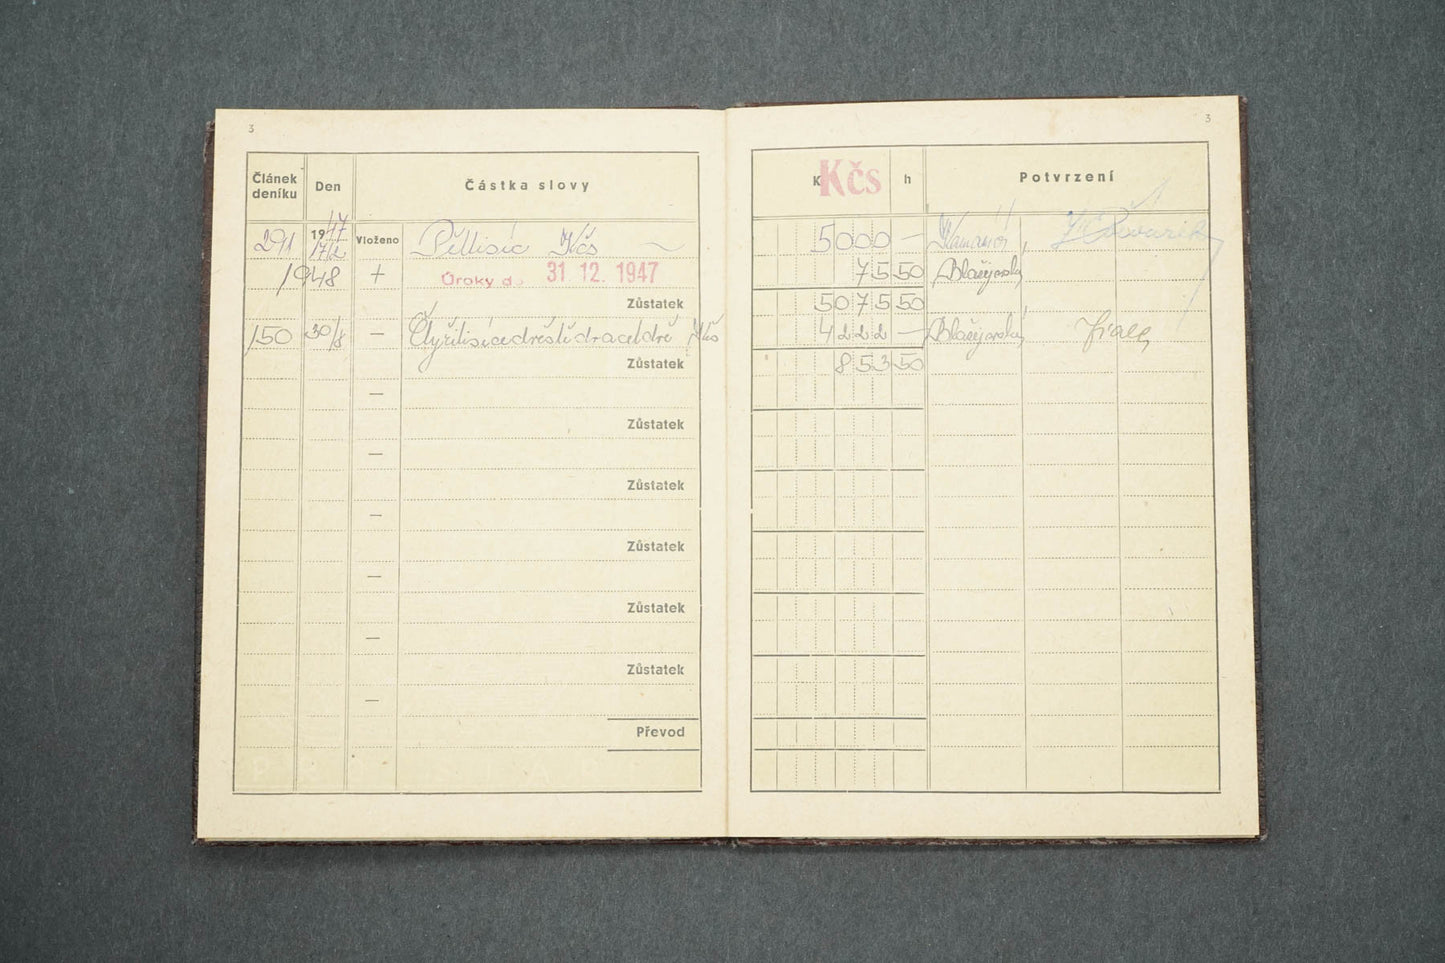 3 3
Článek deníku Den Částka slovy K Kčs h Potvrzení
291 1947 17/2 Vloženo Pěttisíc Kčs 5000 —
1948 + Úroky do 31 12. 1947 75 50 Blažejovský
Zůstatek 5075 50
150 30/8 — Čtyřitisícedvěstědvacetdvě Kčs 4222 — Blažejovský
Zůstatek 853 50
—
Zůstatek
—
Zůstatek
—
Zůstatek
—
Zůstatek
—
Zůstatek
—
Převod